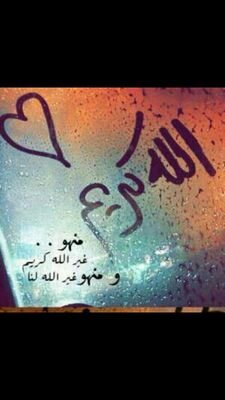 الله كريم
منهو . .
غير الله كريم
و منهو غير الله لنا